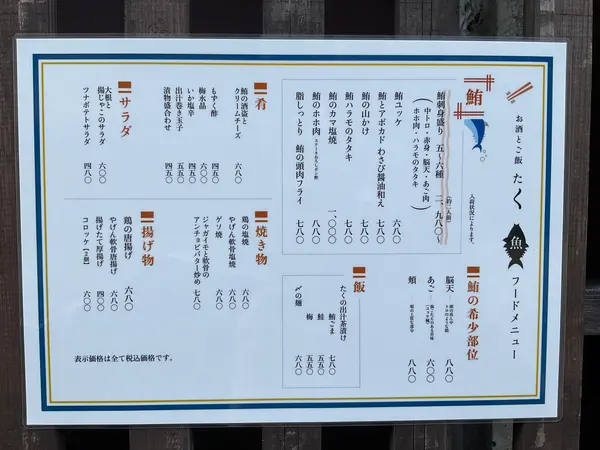 お酒とご飯
たく
魚
フードメニュー
鮪
鮪刺身盛り 五〜六種 二、九八〇〜
(約二人前)
入荷状況によります。
(中トロ・赤身・脳天・あご肉・
ホホ肉・ハラモのタタキ)
鮪ユッケ 六八〇
鮪とアボカド わさび醤油和え 七八〇
鮪の山かけ 七八〇
鮪ハラモのタタキ 七八〇
鮪のカマ塩焼 一、〇〇〇
鮪のホホ肉 八八〇
脂しっとり 鮪の頭肉フライ 七八〇
鮪の希少部位
脳天 八八〇
あご 六〇〇
頬 八八〇
肴
鮪の酒盗と
クリームチーズ 六八〇
もずく酢 四五〇
梅水晶 六〇〇
いか塩辛 四五〇
出汁巻き玉子 五五〇
漬物盛合わせ 四五〇
サラダ
大根と
揚じゃこのサラダ 六〇〇
ツナポテトサラダ 四八〇
焼き物
鶏の塩焼 六八〇
やげん軟骨塩焼 六八〇
ゲソ焼 六八〇
ジャガイモと軟骨の
アンチョビバター炒め 七八〇
揚げ物
鶏の唐揚げ 六八〇
やげん軟骨唐揚げ 六八〇
揚げたて厚揚げ 四〇〇
コロッケ【2個】 六〇〇
飯
たくの出汁茶漬け
鮪ごま 七八〇
鮭 五五〇
梅 五五〇
〆の麺 六八〇
表示価格は全て税込価格です。